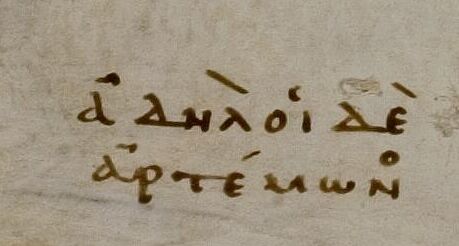 ἃ δηλοῖ δὲ
ἀρτέμωνο